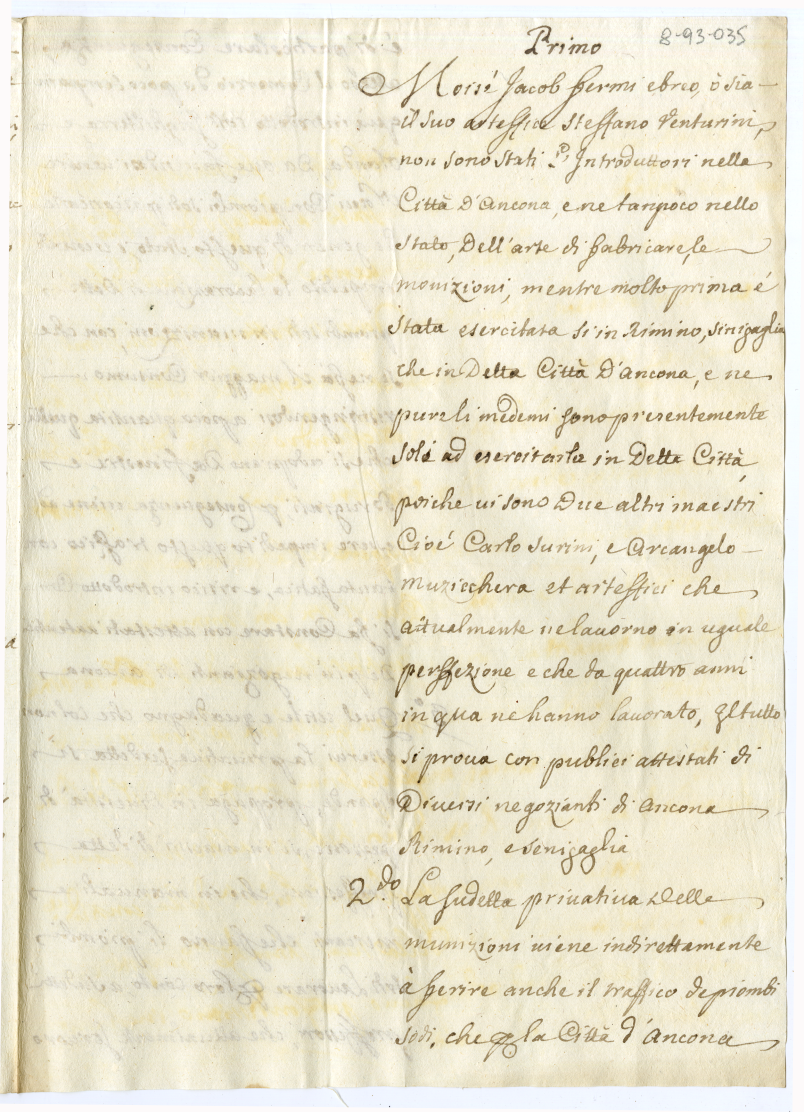 8-93-035
Primo
Moisé Jacob fermi ebreo, ò sia
il suo arteffice steffano Venturini,
non sono stati Pi Introduttori nella
Città D'Ancona, e ne tanpoco nello
stato, Dell'arte di fabricare, le
monizioni, mentre molto prima é
stata esercitata si in Rimino, sinigaglia
che in Detta Città D'ancona, e ne
pure li medemi sono presentemente
soli ad esercitarla in Detta Città,
poiche vi sono Due altri maestri
Cioé Carlo Surini, e Arcangelo
Muzicchera et arteffici che
attualmente ne lavorno in uguale
perffezione e che da quattro anni
in qua ne hanno lavorato, Il tutto
si prova con publici attestati di
Diversi negozianti di Ancona
Rimino, e Senigaglia
2.do La sudetta privativa Delle
munizioni viene indirettamente
à fferire anche il traffico de piombi
sodi, che p la Città d'Ancona